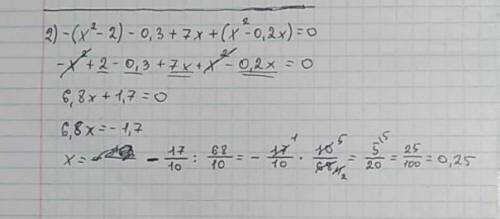 2) -(x²-2)-0,3+7x+(x²-0,2x)=0
-x²+2-0,3+7x+x²-0,2x=0
6,8x+1,7=0
6,8x=-1,7
x= -17/10 : 68/10 = -17/10 · 10/68 = 5/20 = 25/100 = 0,25